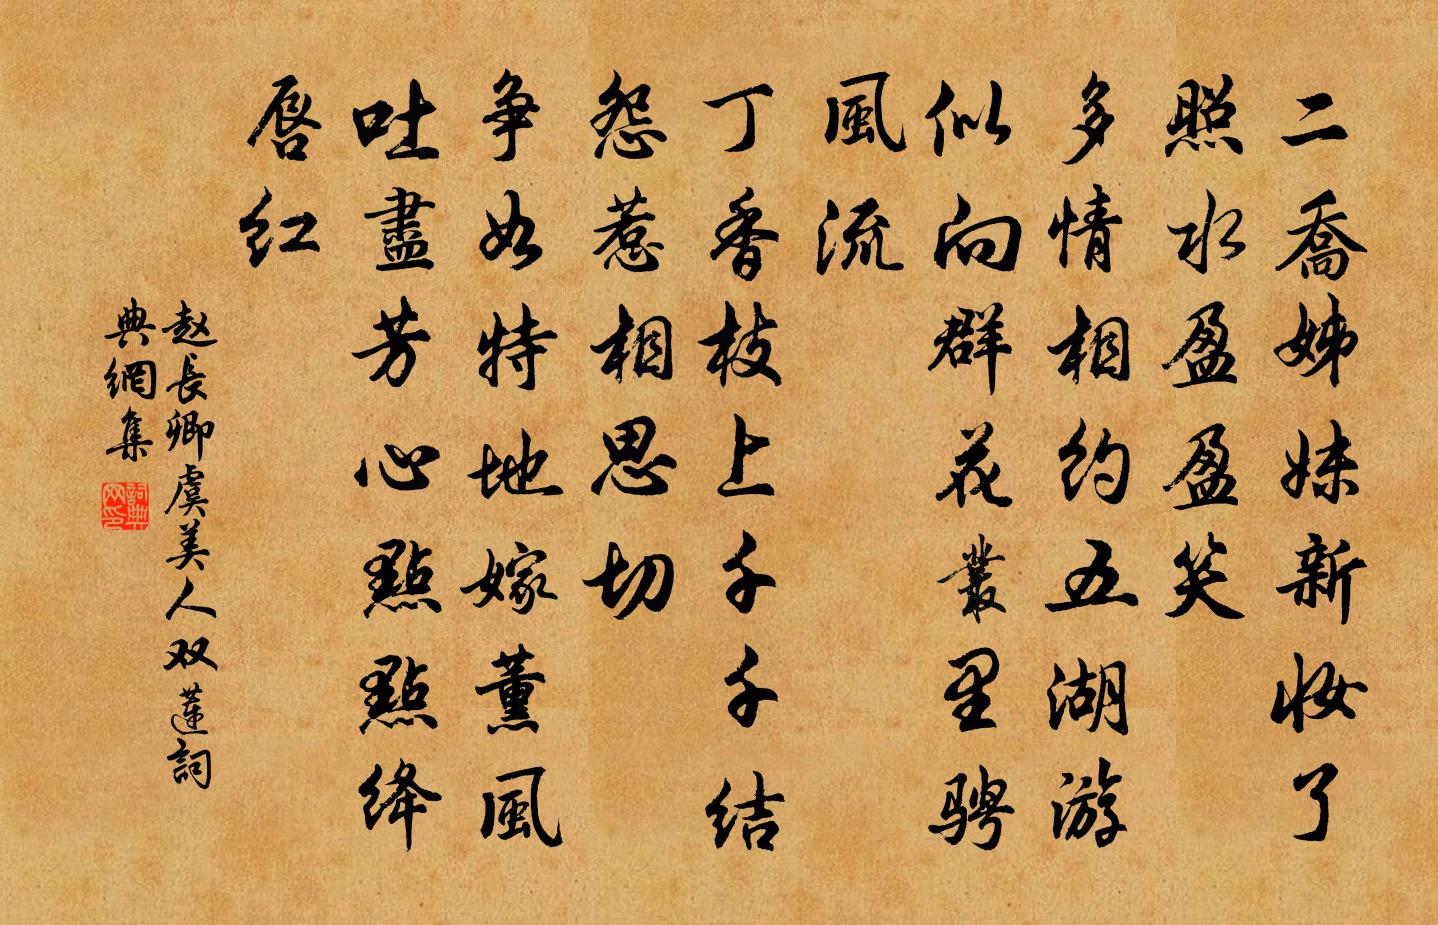 二喬姊妹新妆了
照水盈盈笑
多情相约五湖游
似向群花叢里骋
風流
丁香枝上千千结
怨惹相思切
争如特地嫁薰風
吐盡芳心點點绛
唇红
赵長卿虞美人双蓮詞
典網集
詞典網印